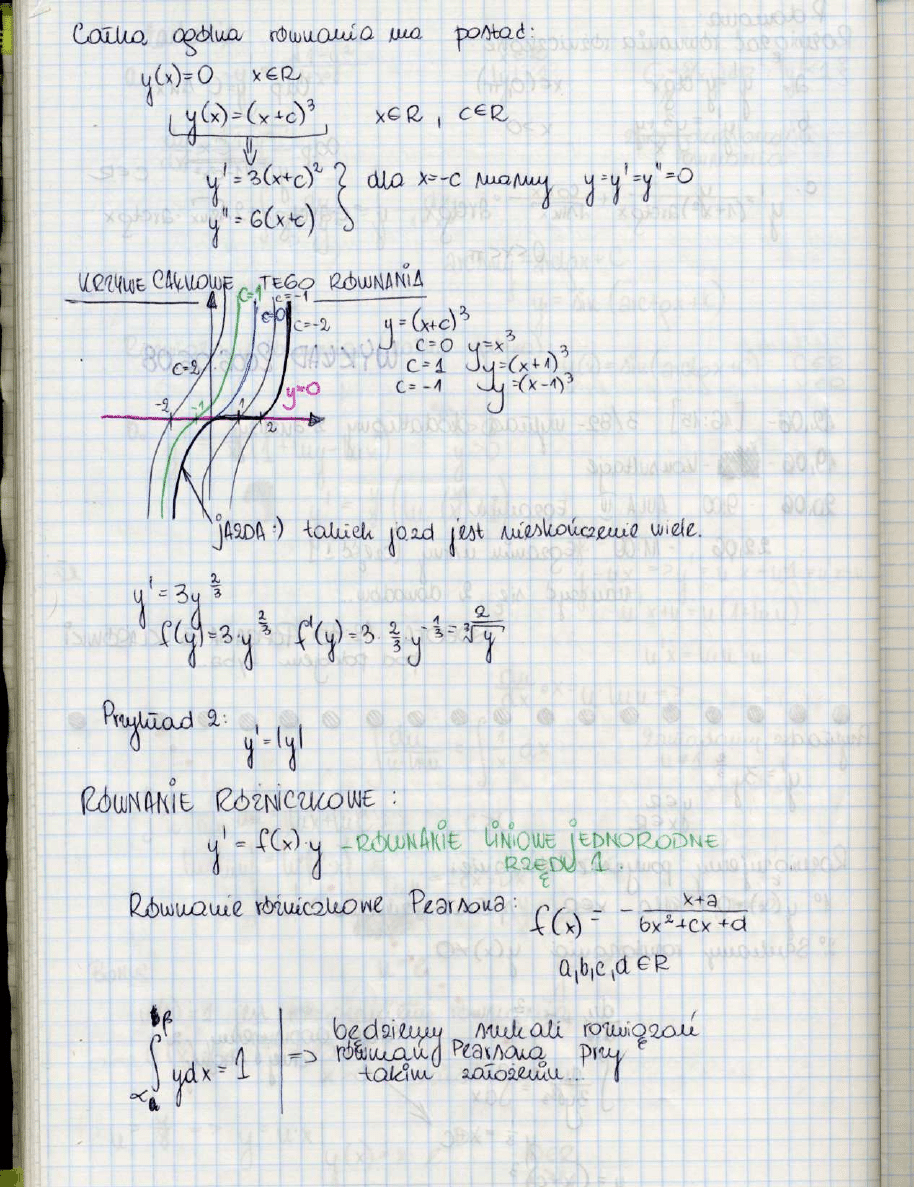 Całka ogólna równania ma postać:
y(x)=0 x∈R
y(x)=(x+c)³ x∈R , c∈R
y' = 3(x+c)² } dla x=-c mamy y=y'=y''=0
y'' = 6(x+c)
KRZYWE CAŁKOWE TEGO RÓWNANIA
c=1 c=-1
c=0 c=-2
c=2
y=(x+c)³
c=0 y=x³
c=1 y=(x+1)³
c=-1 y=(x-1)³
y=0
-2 -1 1 2
JAZDA:) takich jazd jest nieskończenie wiele.
y' = 3y^(2/3)
f(y)=3·y^(2/3) f'(y)=3·2/3 y^(-1/3) = 2/∛y
Przykład 2:
y'=|y|
RÓWNANIE RÓŻNICZKOWE:
y' = f(x)·y - RÓWNANIE LINIOWE JEDNORODNE
RZĘDU 1.
Równanie różniczkowe Pearsona: f(x) = - (x+a)/(bx²+cx+d)
a,b,c,d ∈R
∫_α^β ydx = 1 => będziemy szukali rozwiązań
równań Pearsona przy
takim założeniu...